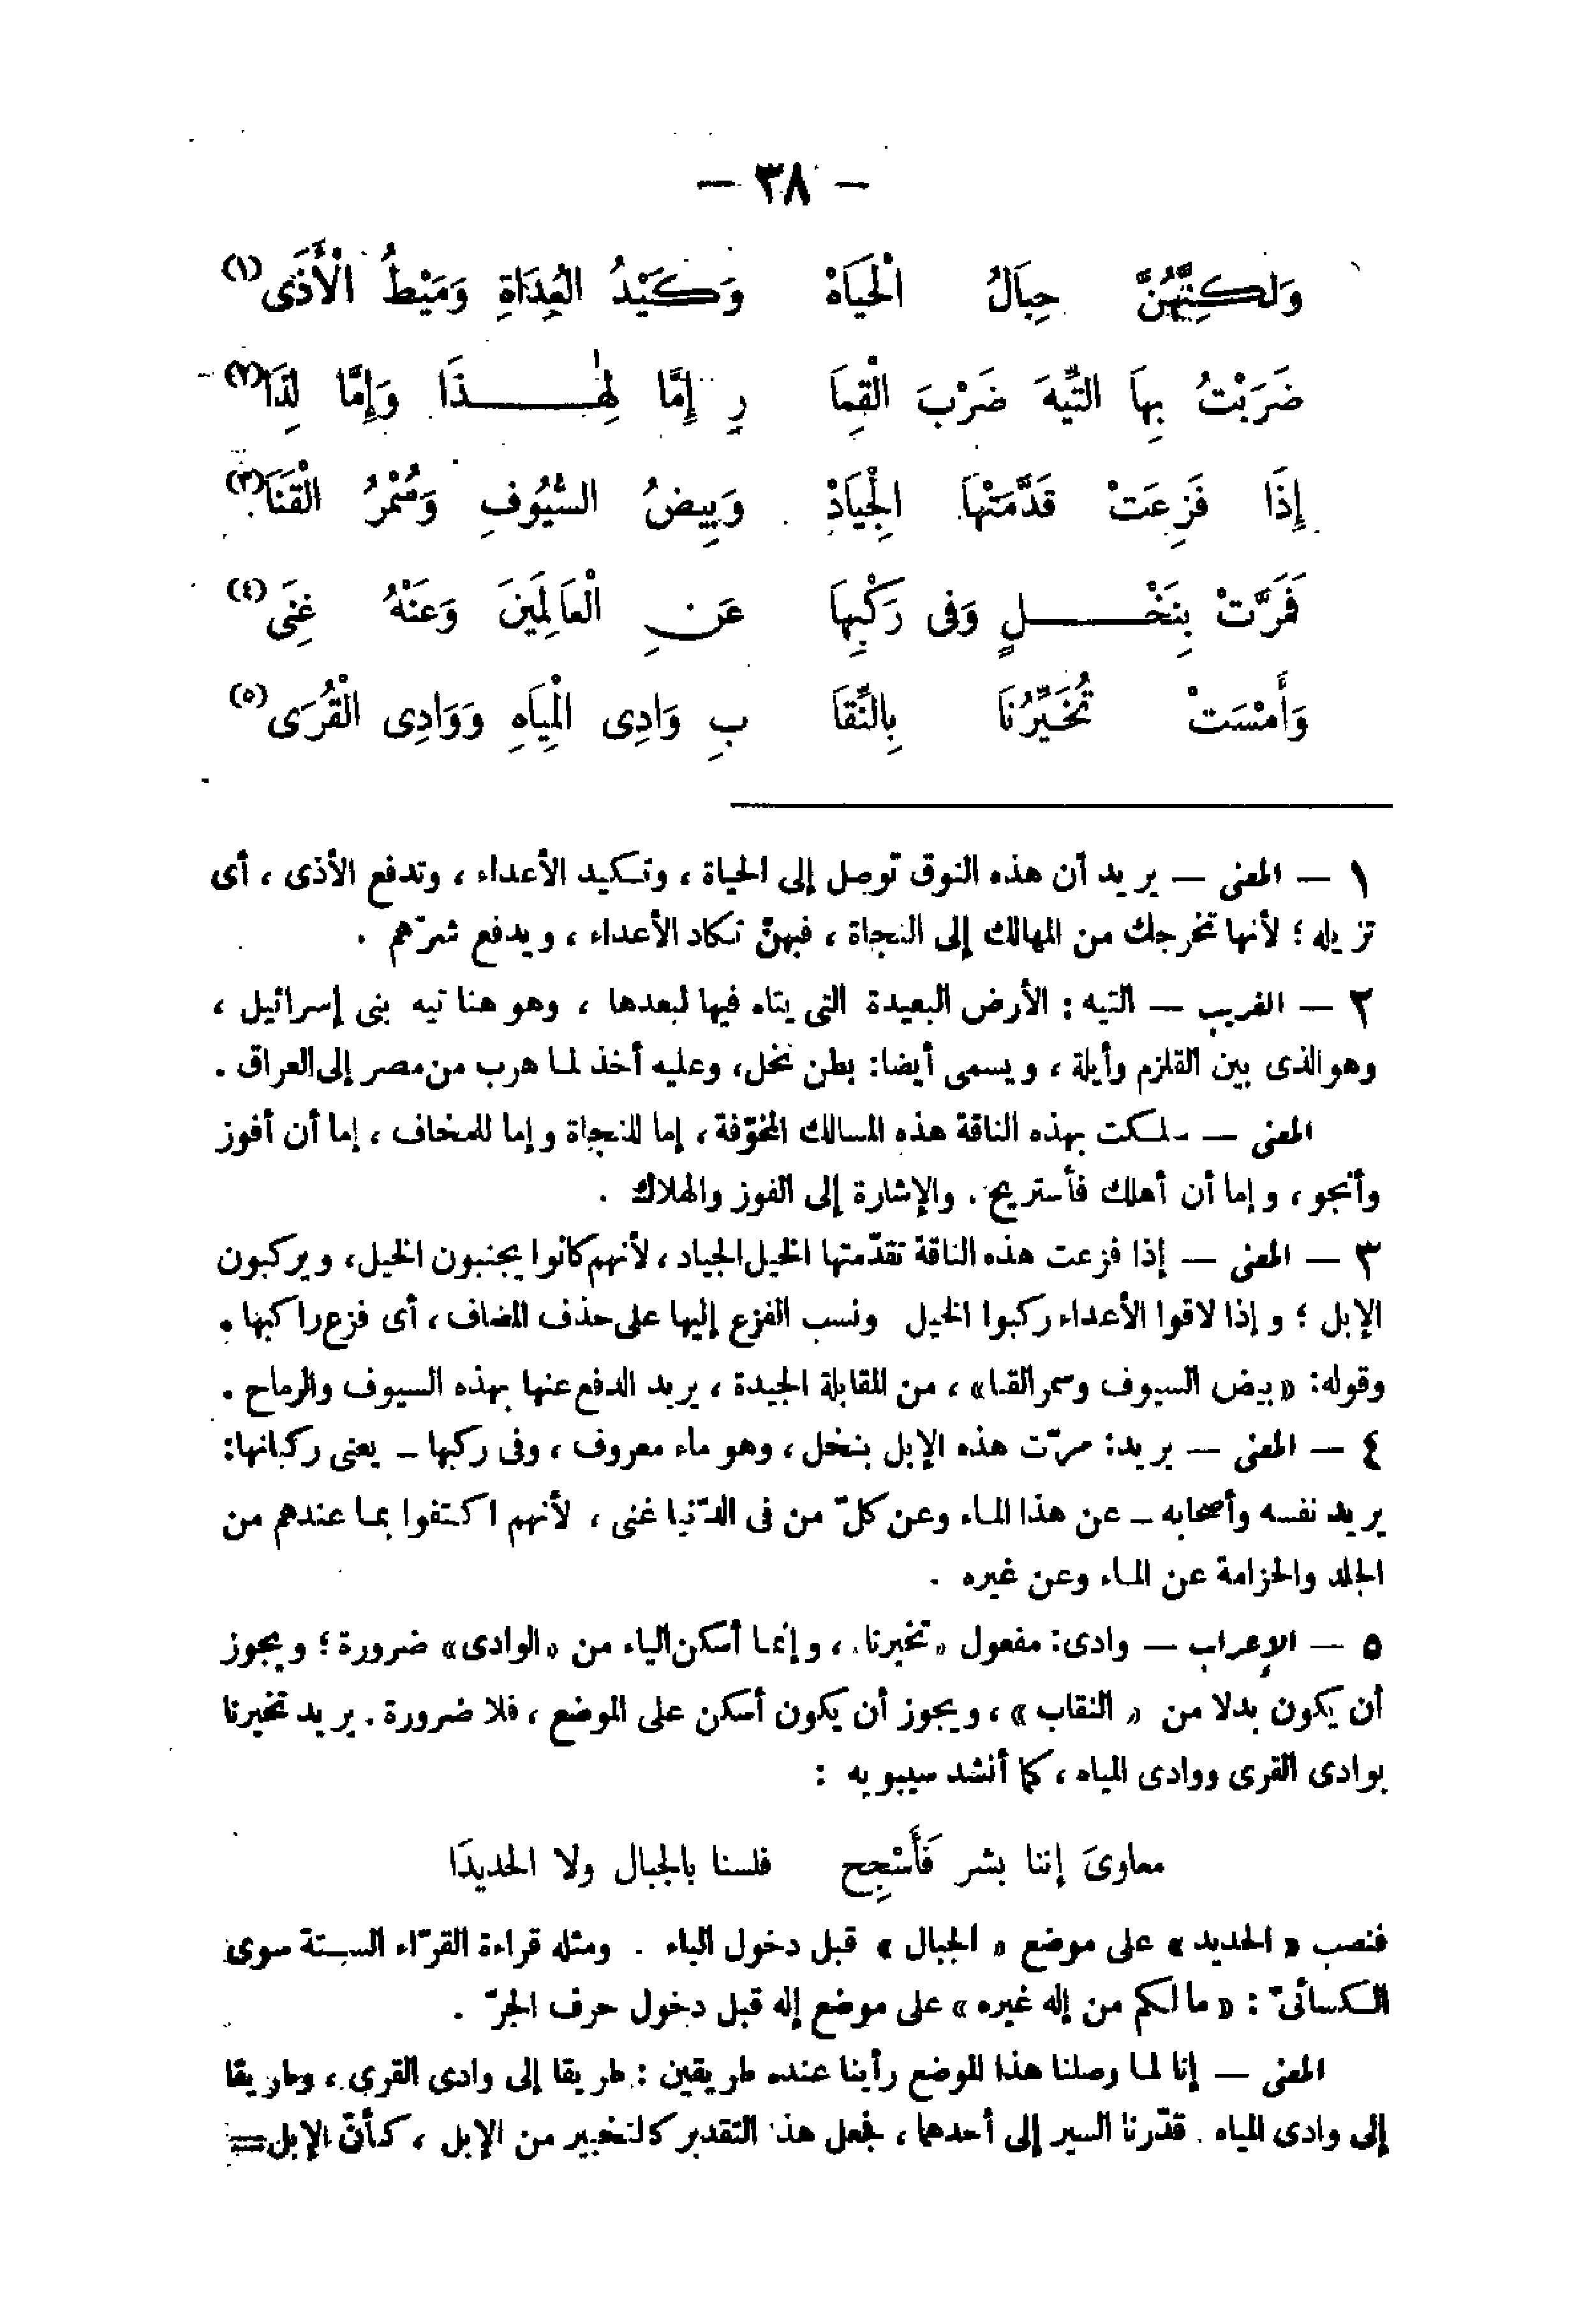 — ٣٨ —
وَلكِنَّهُنَّ حِبَالُ الْحَيَاهْ وَكَيْدُ الْعِدَاةِ وَمَيْطُ الْأَذَى (١)
ضَرَبْتُ بِهَا التِّيهَ ضَرْبَ الْقِمَا رِ إِمَّا لِهٰذَا وَإِمَّا لِذَا (٢)
إِذَا فَزِعَتْ قَدَّمَتْهَا الْجِيَادْ وَبِيضُ السُّيُوفِ وَسُمْرُ الْقَنَا (٣)
فَمَرَّتْ بِنَخْلٍ وَفى رَكْبِهَا عَنِ الْعَالَمِينَ وَعَنْهُ غِنَى (٤)
وَأَمْسَتْ تُخَيِّرُنَا بِالنِّقَا بِ وَادِى الْمِيَاهِ وَوَادِى الْقُرَى (٥)
١ — المعنى — يريد أن هذه النوق توصل إلى الحياة ، وتكيد الأعداء ، وتدفع الأذى ، أى
تزيله ؛ لأنها تخرجك من المهالك إلى النجاة ، فبهنّ تكاد الأعداء ، ويدفع شرّهم .
٢ — الغريب — التيه : الأرض البعيدة التى يتاه فيها لبعدها ، وهو هنا تيه بنى إسرائيل ،
وهو الذى بين القلزم وأيلة ، ويسمى أيضا: بطن نخل، وعليه أخذ لما هرب من مصر إلى العراق .
المعنى — سلكت بهذه الناقة هذه المسالك المخوّفة ، إما للنجاة وإما للمخاف ، إما أن أفوز
وأنجو ، وإما أن أهلك فأستريح . والإشارة إلى الفوز والهلاك .
٣ — المعنى — إذا فزعت هذه الناقة تقدّمتها الخيل الجياد ، لأنهم كانوا يجنبون الخيل، ويركبون
الإبل ؛ وإذا لاقوا الأعداء ركبوا الخيل ونسب الفزع إليها على حذف المضاف ، أى فزع راكبها .
وقوله: «بيض السيوف وسمر القنا» ، من المقابلة الجيدة ، يريد الدفع عنها بهذه السيوف والرماح .
٤ — المعنى — يريد: مرّت هذه الإبل بنخل ، وهو ماء معروف ، وفى ركبها — يعنى ركبانها:
يريد نفسه وأصحابه — عن هذا الماء وعن كلّ من فى الدّنيا غنى ، لأنهم اكتفوا بما عندهم من
الجلد والحزامة عن الماء وعن غيره .
٥ — الإعراب — وادى: مفعول «تخيرنا» ، وإنما أسكن الياء من «الوادى» ضرورة ؛ ويجوز
أن يكون بدلا من «النقاب» ، ويجوز أن يكون أسكن على الموضع ، فلا ضرورة . يريد تخيرنا
بوادى القرى ووادى المياه ، كما أنشد سيبويه :
معاوىَ إننا بشر فَأَسْجِح فلسنا بالجبال ولا الحديدَا
فنصب «الحديد» على موضع «الجبال» قبل دخول الباء . ومثله قراءة القرّاء الستة سوى
الكسائىّ : «ما لكم من إله غيره» على موضع إله قبل دخول حرف الجرّ .
المعنى — إنا لما وصلنا هذا الموضع رأينا عنده طريقين : طريقا إلى وادى القرى ، وطريقا
إلى وادى المياه . قدّرنا السير إلى أحدهما ، فجعل هذا التقدير كالتخيير من الإبل ، كأنّ الإبل =